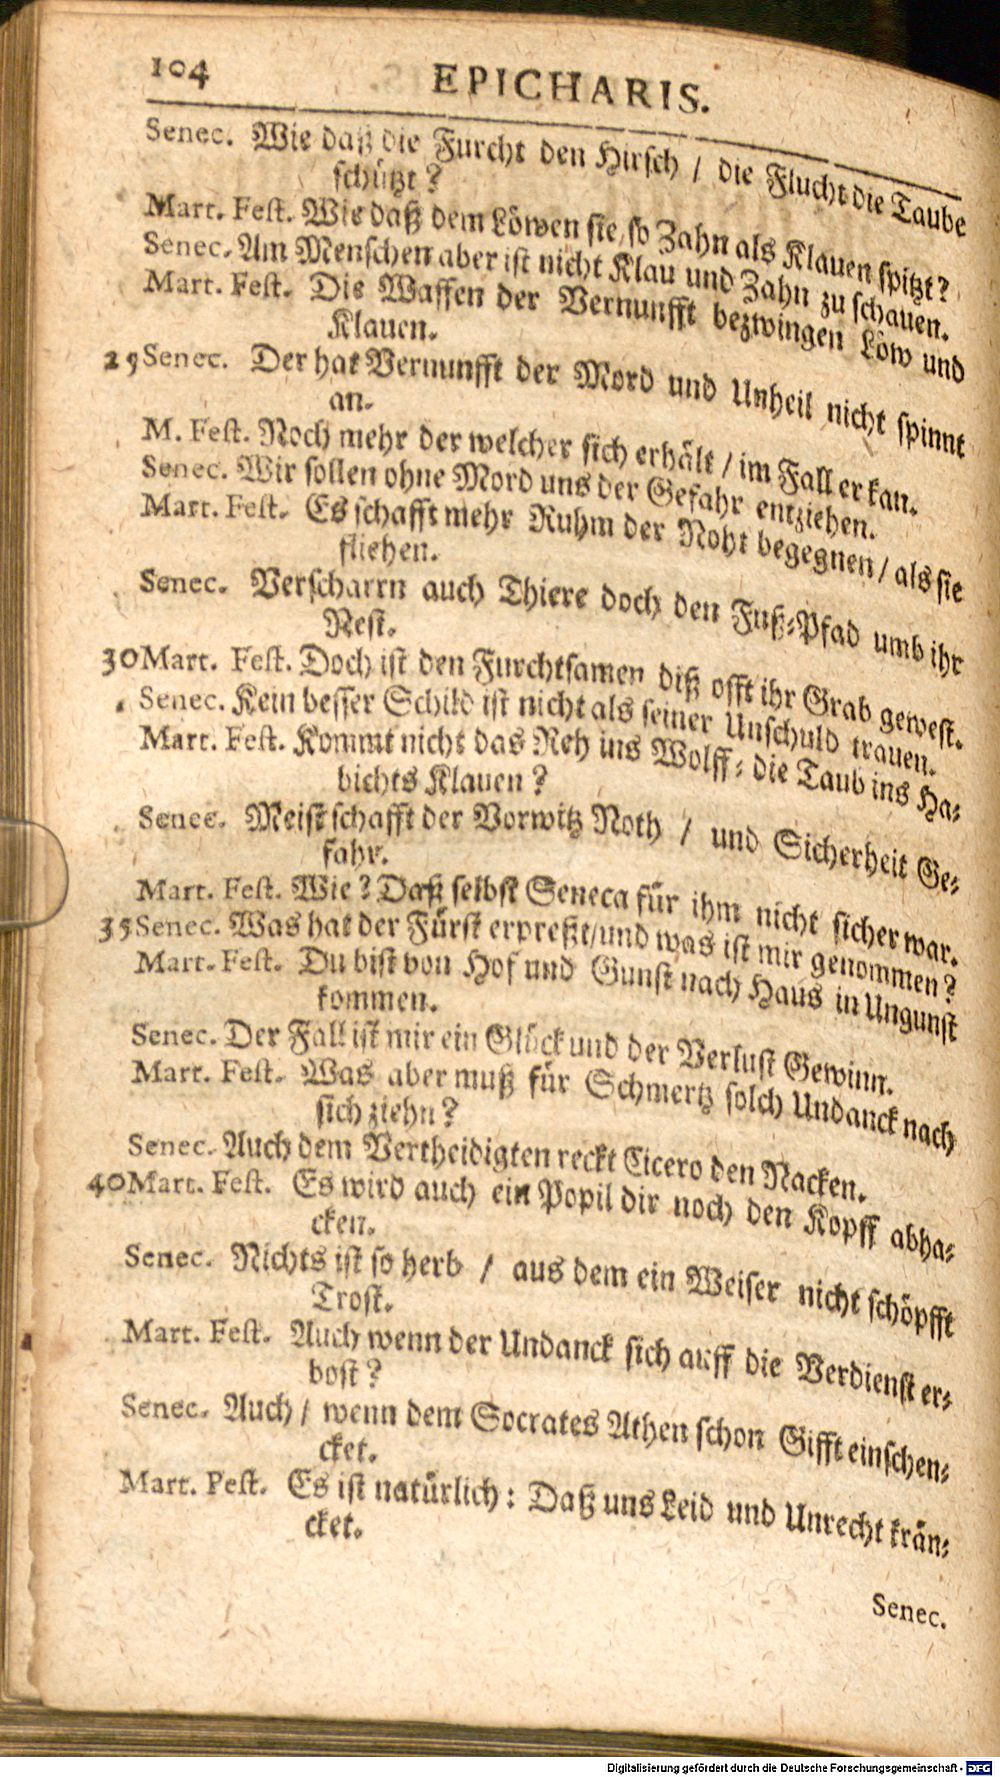 104 EPICHARIS.
Senec. Wie daß die Furcht den Hirsch / die Flucht die Taube
schützt?
Mart. Fest. Wie daß dem Löwen sie, so Zahn als Klauen spitzt?
Senec. Am Menschen aber ist nicht Klau und Zahn zu schauen.
Mart. Fest. Die Waffen der Vernunfft bezwingen Löw und
Klauen.
25 Senec. Der hat Vernunfft der Mord und Unheil nicht spinnt
an.
M. Fest. Noch mehr der welcher sich erhält / im Fall er kan.
Senec. Wir sollen ohne Mord uns der Gefahr entziehen.
Mart. Fest. Es schafft mehr Ruhm der Noht begegnen / als sie
fliehen.
Senec. Verscharrn auch Thiere doch den Fuß-Pfad umb ihr
Nest.
30 Mart. Fest. Doch ist den Furchtsamen diß offt ihr Grab gewest.
Senec. Kein besser Schild ist nicht als seiner Unschuld trauen.
Mart. Fest. Kommt nicht das Reh ins Wolff- die Taub ins Ha-
bichts Klauen?
Senec. Meist schafft der Vorwitz Noth / und Sicherheit Ge-
fahr.
Mart. Fest. Wie? Daß selbst Seneca für ihm nicht sicher war.
35 Senec. Was hat der Fürst erpreßt / und was ist mir genommen?
Mart. Fest. Du bist von Hof und Gunst nach Haus in Ungunst
kommen.
Senec. Der Fall ist mir ein Glück und der Verlust Gewinn.
Mart. Fest. Was aber muß für Schmertz solch Undanck nach
sich ziehn?
Senec. Auch dem Vertheidigten reckt Cicero den Nacken.
40 Mart. Fest. Es wird auch ein Popil dir noch den Kopff abha-
cken.
Senec. Nichts ist so herb / aus dem ein Weiser nicht schöpfft
Trost.
Mart. Fest. Auch wenn der Undanck sich auff die Verdienst er-
bost?
Senec. Auch / wenn dem Socrates Athen schon Gifft einschen-
cket.
Mart. Pest. Es ist natürlich: Daß uns Leid und Unrecht krän-
cket.
Senec.
Digitalisierung gefördert durch die Deutsche Forschungsgemeinschaft - DFG